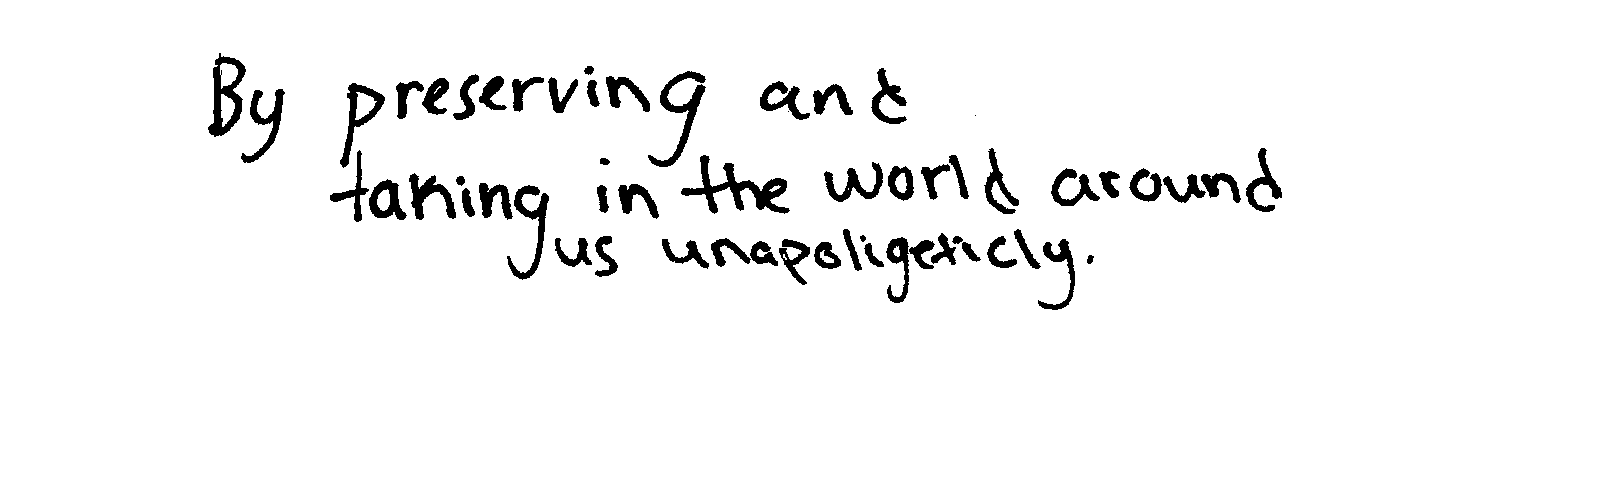 By preserving and
taking in the world around
us unapoligeticly.